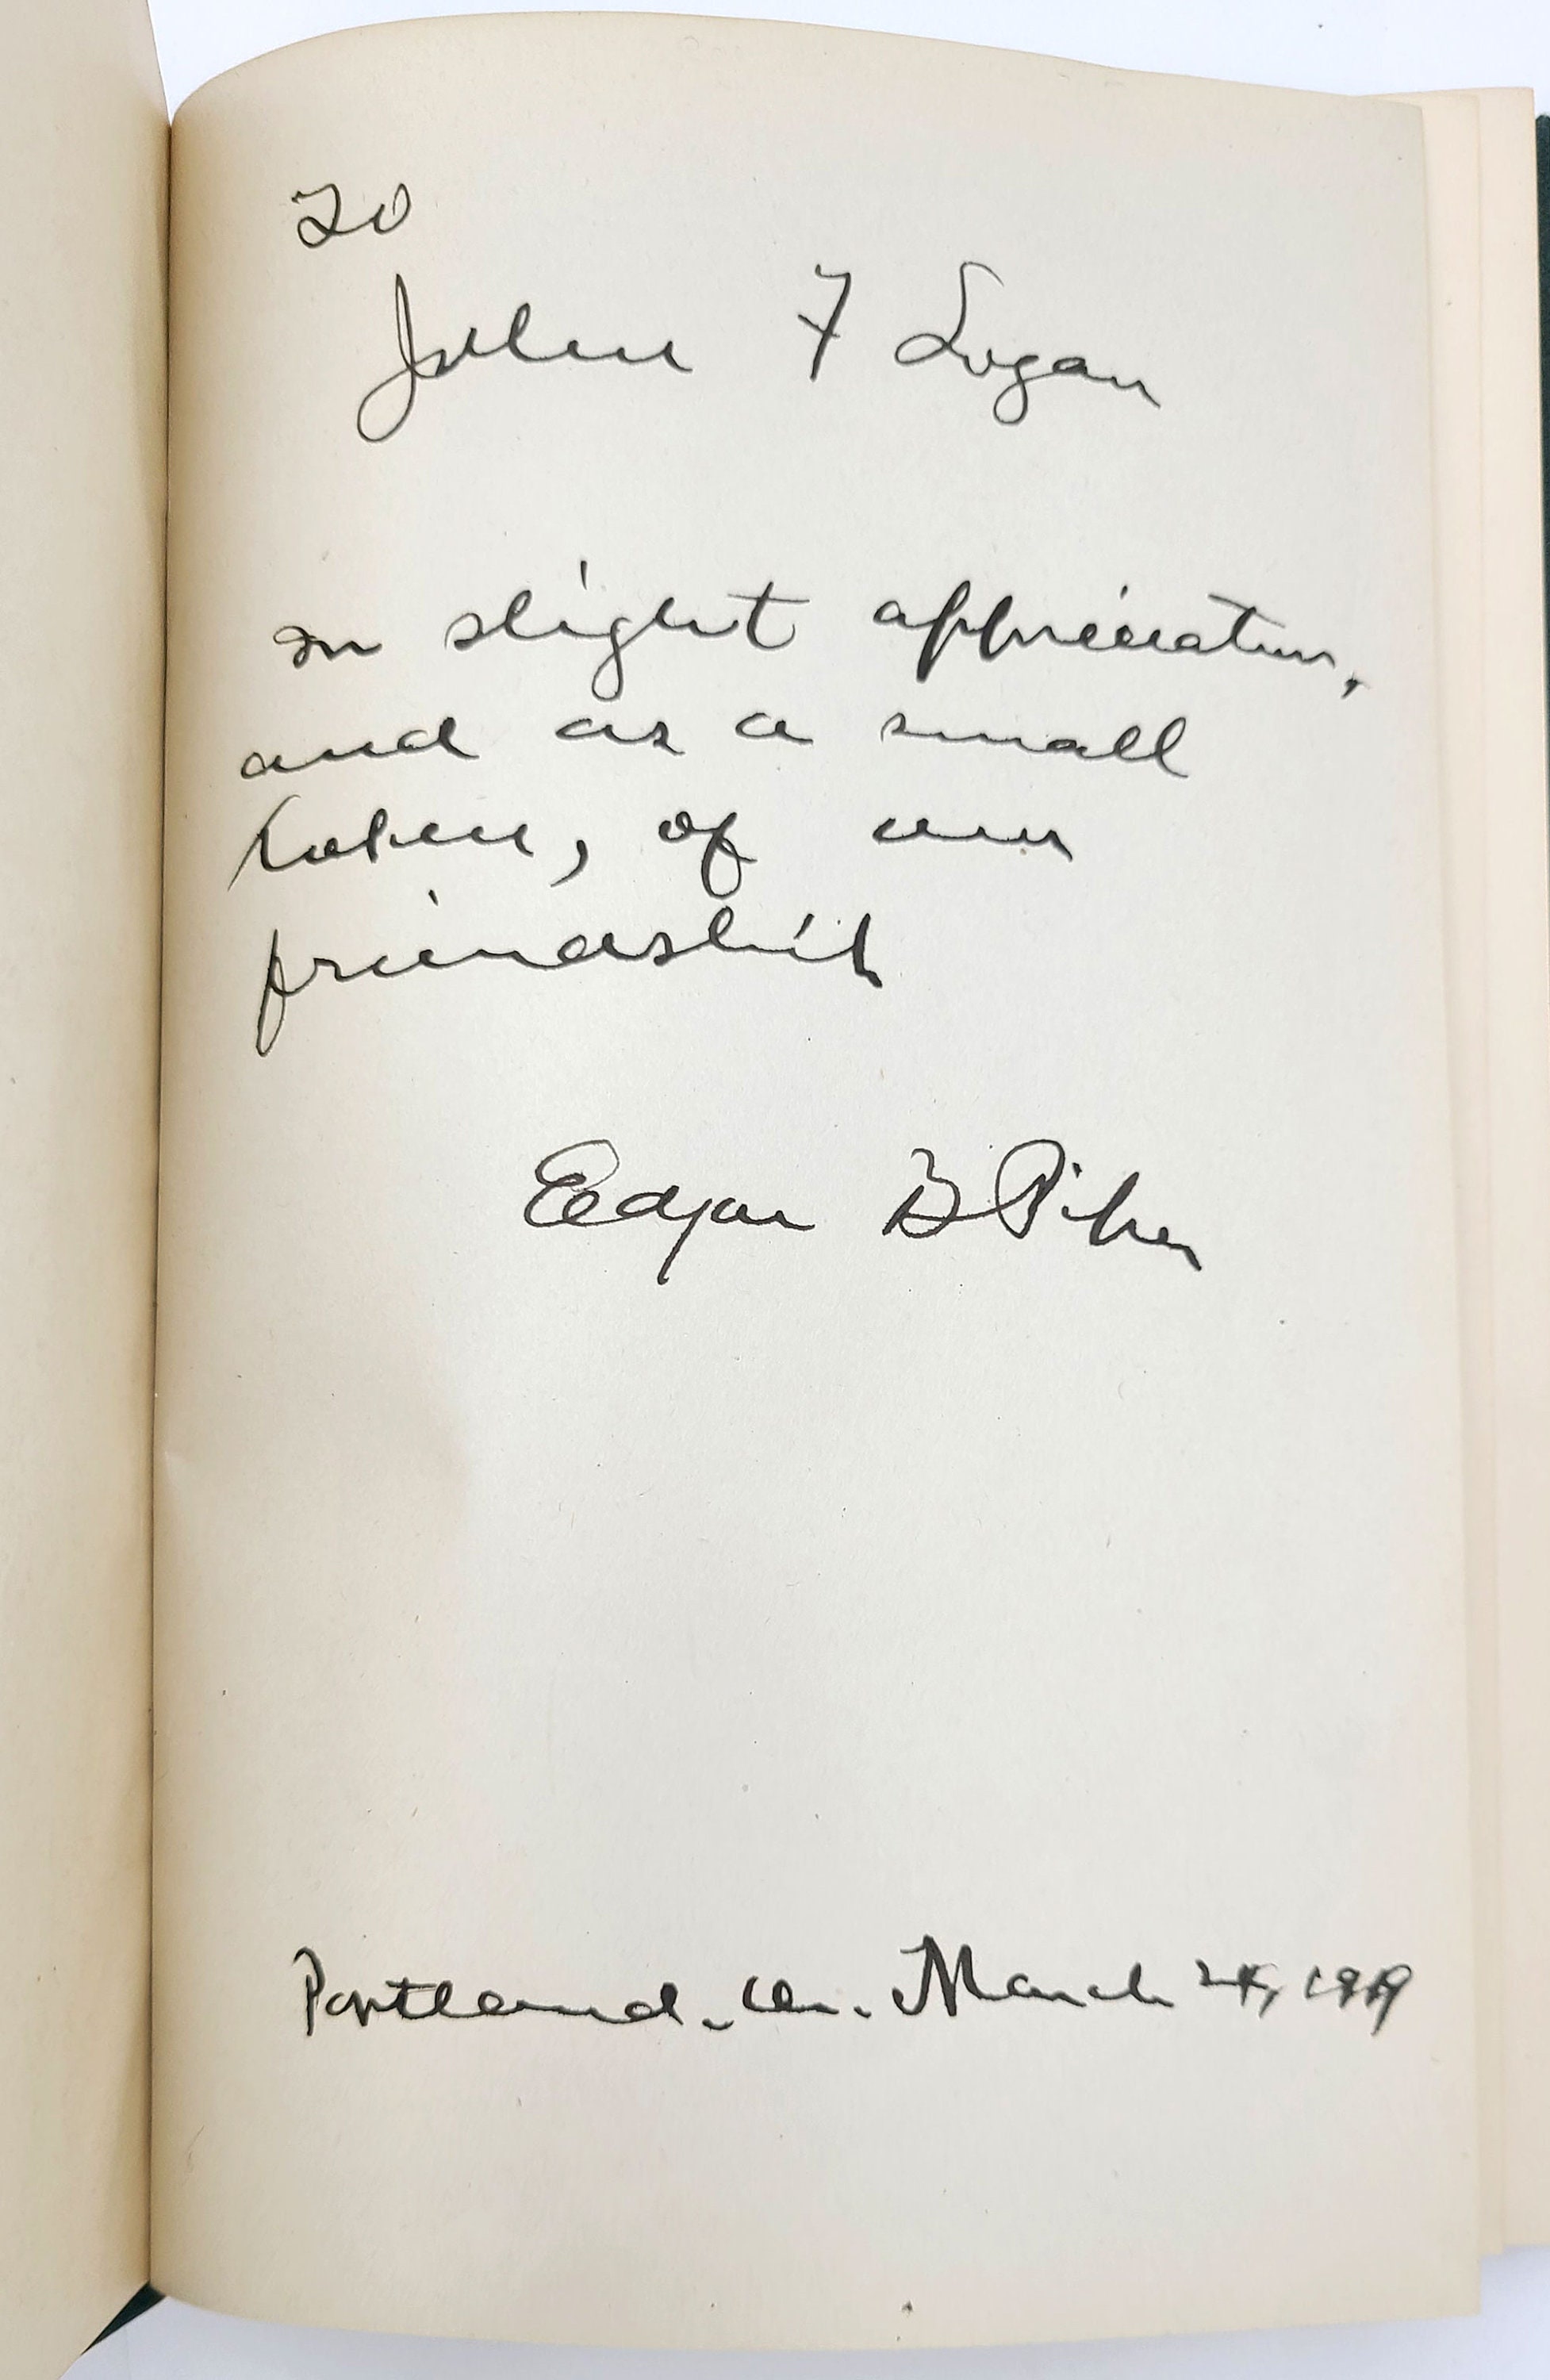 To
John F Logan
In slight appreciation,
and as a small
token, of our
friendship
Edgar B Piper
Portland, Or. March 24, 1919